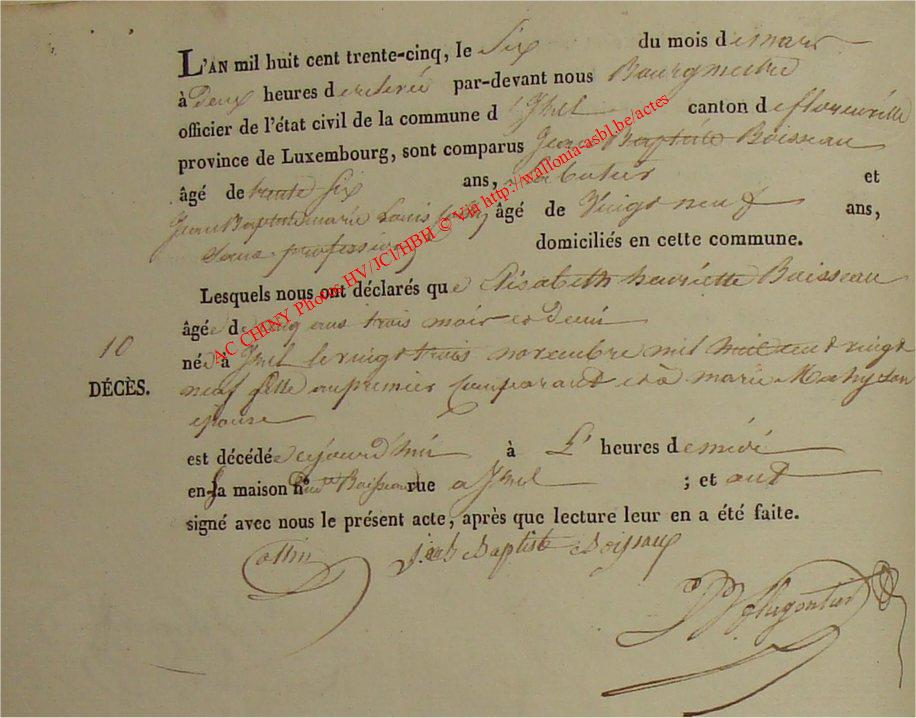 L'AN mil huit cent trente-cinq, le Six du mois de mars
à Deux heures de relevée par-devant nous Bourgmestre
officier de l'état civil de la commune d'Izel canton de florenville
province de Luxembourg, sont comparus Jean Baptiste Boisseau
âgé de trente six ans, et
Jean Baptiste marie Louis âgé de Vingt neuf ans,
Sans profession domiciliés en cette commune.
Lesquels nous ont déclarés que Elisabeth henriette Boisseau
âgée de cinq ans trois mois et demi
née à Izel le vingt trois novembre mil huit cent vingt
10
DÉCÈS.
neuf fille au premier Comparant et à marie Mathy son
épouse
est décédée cejourd'hui à L' heures de midi
en sa maison n° Boisseau rue a Izel ; et ont
signé avec nous le présent acte, après que lecture leur en a été faite.
Collin Jean Baptiste Boisseaux
AC CHINY Photos HV/JCl/HBH © Via http://wallonia-asbl.be/actes